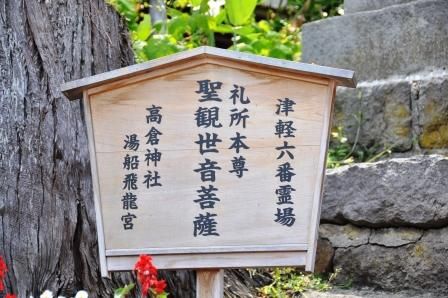 津軽六番霊場
礼所本尊
聖観世音菩薩
高倉神社
湯船飛龍宮